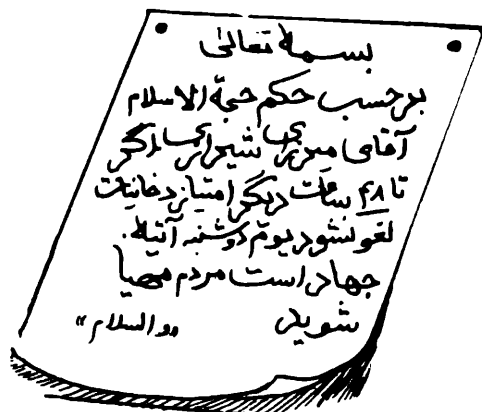 بسمه تعالی
برحسب حکم حجة الاسلام
آقای میرزای شیرازی اگر
تا ۴۸ ساعت دیگر امتیاز دخانیات
لغو نشود یوم دوشنبه آتیه.
جهاد است مردم مهیا
شوید «والسلام»